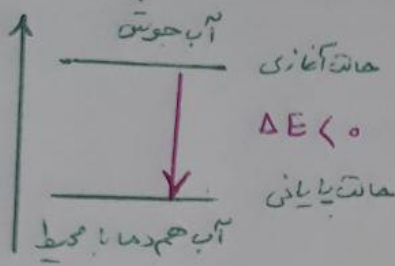 آب جوش
حالت آغازی
ΔE < ۰
حالت پایانی
آب هم دما با محیط